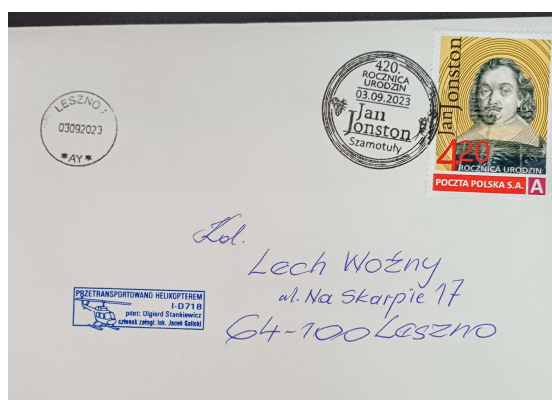 LESZNO 1
03092023
*AY*
420.
ROCZNICA
URODZIN
03.09.2023
Jan
Jonston
Szamotuły
Jan Jonston
420
ROCZNICA URODZIN
POCZTA POLSKA S.A. A
Kol.
Lech Woźny
ul. Na Skarpie 17
64-100 Leszno
PRZETRANSPORTOWANO HELIKOPTEREM
I-D718
pilot: Olgierd Stankiewicz
członek załogi: lek. Jacek Galicki